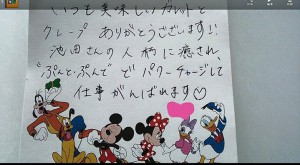 いつも美味しいガレットと
クレープ ありがとうございます!!
池田さんの人柄に癒され、
"ぷんと・ぷんて"で パワーチャージして
仕事がんばれます♡